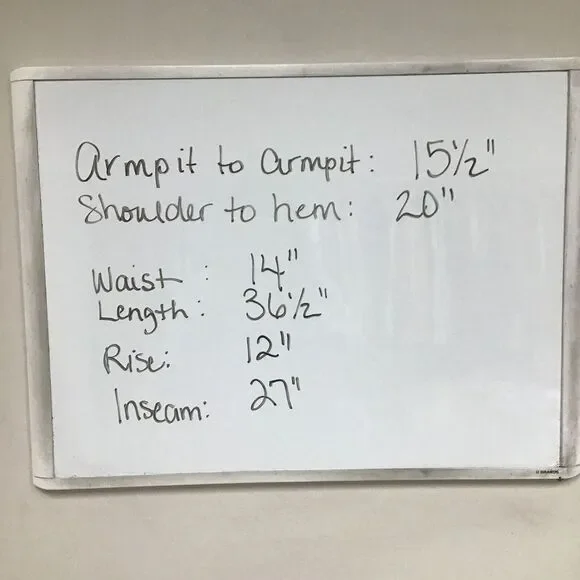 Armpit to armpit: 15½"
Shoulder to hem: 20"
Waist : 14"
Length: 36½"
Rise: 12"
Inseam: 27"
U BRANDS